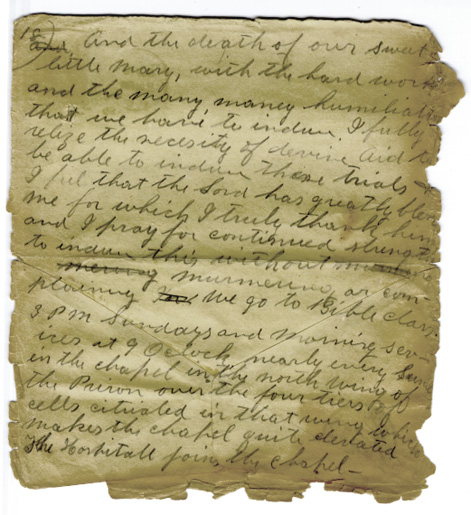 18)
and, And the death of our sweet
little Mary, with the hard work
and the many, maney humiliati
that we have to indure. I fully
relize the necisity of devine aid t
be able to indure these trials &
I feel that the Lord has greatly bless
me for which I truly thank him
and I pray for continued strength
to indure this without
murmering or com-
plaining We go to Bible class
3 PM Sundays and morning ser-
ices at 9 Oclock nearly every Sun
in the chapel in the north wing of
the Prison over the four tiers of
cells cituated in that wing which
makes the chapel quite elevated
The Hospitall joins the chapel-